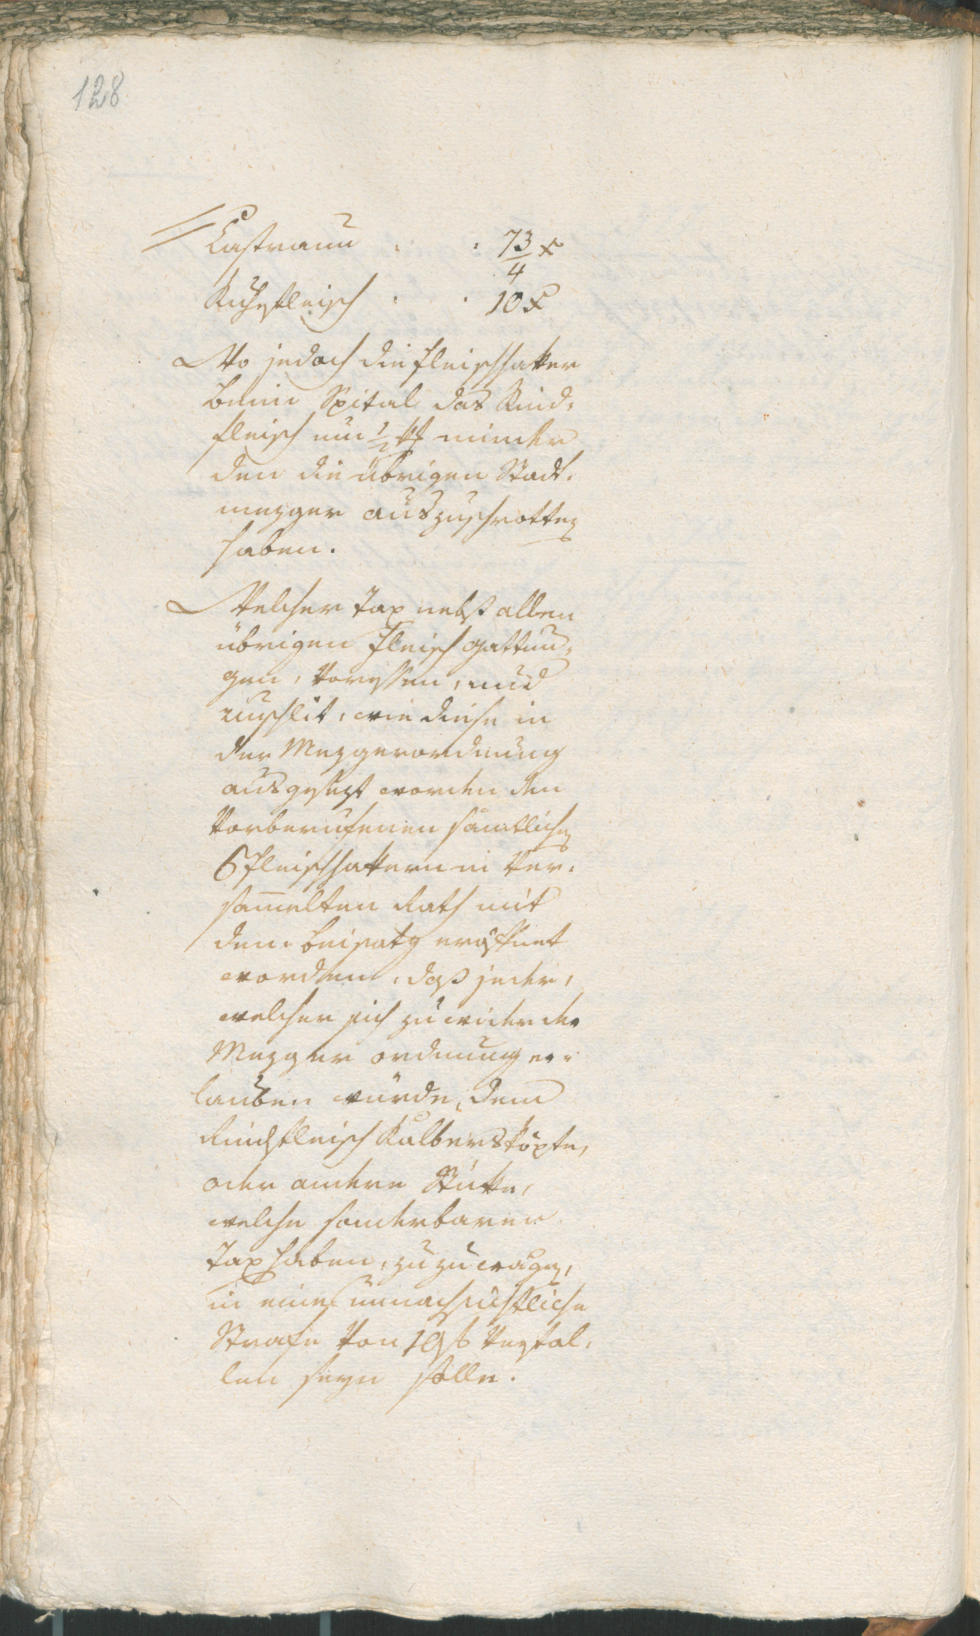 128
Castraun . . 7 3/4 x
Kuhefleisch . . 10 x
Wo jedoch die Fleischhaker
beim Spital das Rind-
fleisch um 1/2 xr minder
den die übrigen Stadt-
mezger auszuschrotten
haben.
Welcher Tax nebst allen
übrigen Fleisch gattun-
gen, Voressen, und
unschlit, wie diese in
der Mezgerordnung
ausgesezt worden den
Vorberufenen sämtlichen
6 Fleischhakern in Ver-
sam̅elten Rath mit
dem beisatz eröffnet
worden, daß jeder,
welcher sich zuwider der
Mezger ordnung er-
lauben würde, dem
Rindfleisch Kalbersköpfe,
oder andere Stüke,
welche sonderbaren
Tax haben, zuzuwägen,
in eine unnachsichtliche
Strafe von 10 f Verfal-
len seyn solle.